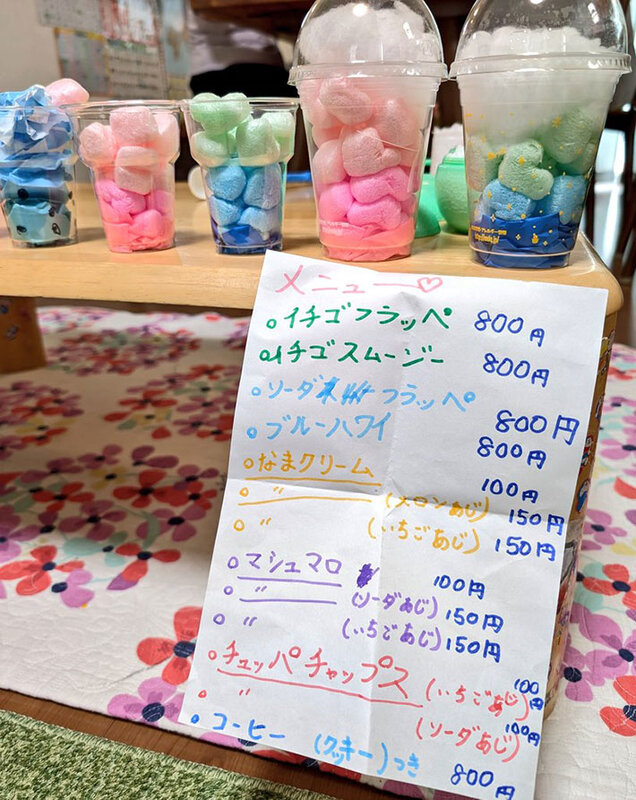 メニュー♡
○イチゴフラッペ 800円
○イチゴスムージー 800円
○ソーダフラッペ 800円
○ブルーハワイ 800円
○なまクリーム 100円
○ 〃 (メロンあじ) 150円
○ 〃 (いちごあじ) 150円
○マシュマロ 100円
○ 〃 (ソーダあじ) 150円
○ 〃 (いちごあじ) 150円
○チュッパチャップス (いちごあじ) 100円
○ 〃 (ソーダあじ) 100円
○コーヒー (クッキー)つき 800円